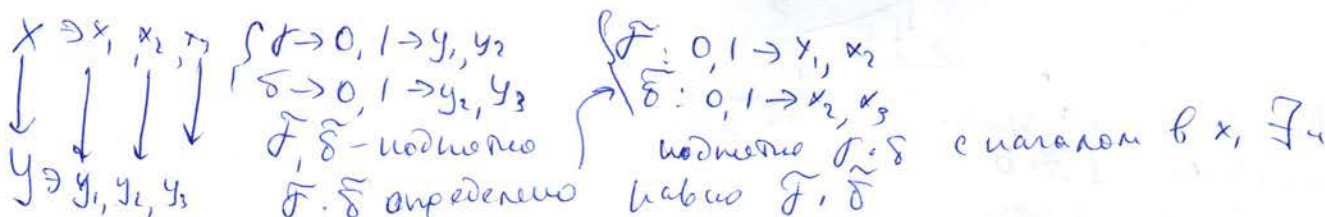 X ∋ x₁, x₂, x₃ { γ → 0, 1 → y₁, y₂ { γ̃ : 0, 1 → x₁, x₂
δ → 0, 1 → y₂, y₃ δ̃ : 0, 1 → x₂, x₃
γ̃, δ̃ - поднятие поднятие γ·δ с началом в x₁ ∃
Y ∋ y₁, y₂, y₃ γ̃·δ̃ определено равно γ̃·δ̃